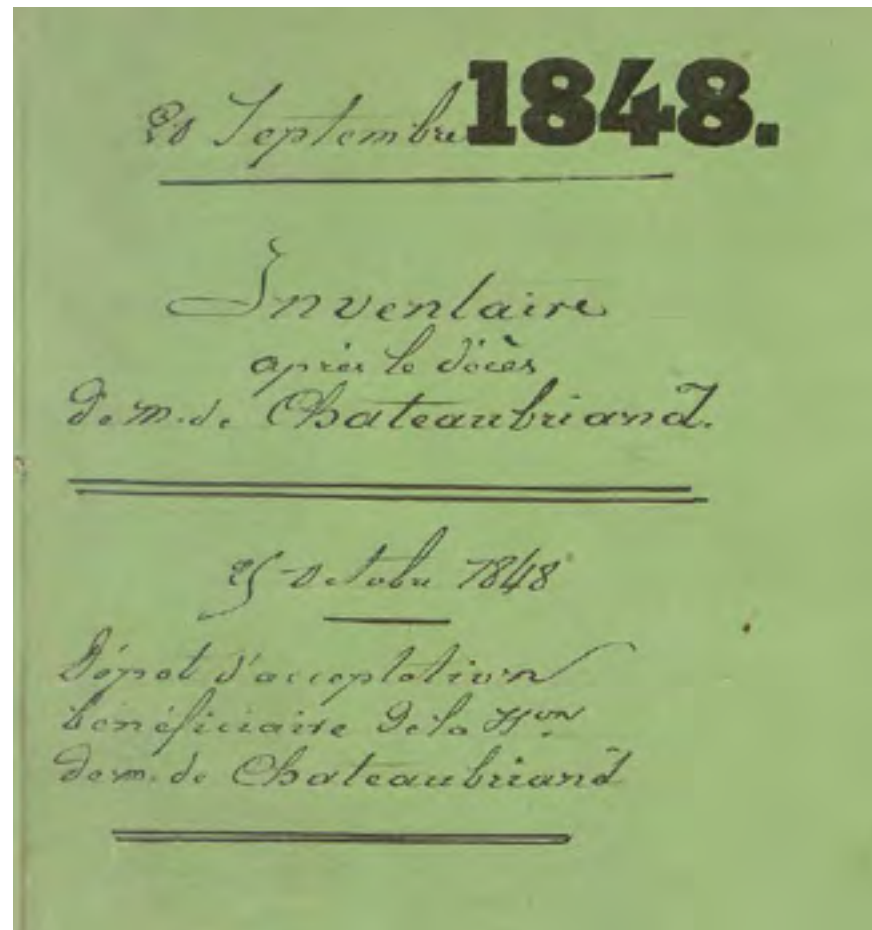 20 Septembre 1848.
Inventaire
après le décès
de m. de Chateaubriand.
25 Octobre 1848
Dépot d'acceptation
bénéficiaire de la
de m. de Chateaubriand